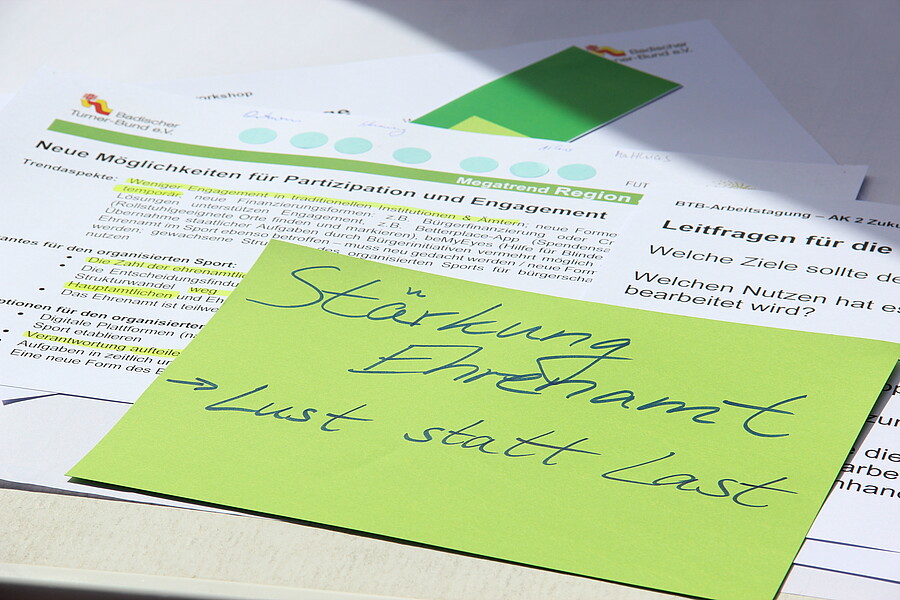 Badischer
Turner-Bund e.V.
Neue Möglichkeiten für Partizipation und Engagement
Megatrend Region
Trendaspekte: Weniger Engagement in traditionellen Institutionen & Ämter,
temporär, neue Finanzierungsformen: z.B. Bürgerfinanzierung, neue Forme
Lösungen unterstützen Engagement: z.B. Betterplace-App (Spendense
(Rollstuhlgeeignete Orte finden und markieren), beMyEyes (Hilfe für Blinde
Übernahme von staatlicher Aufgaben durch Bürgerinitiativen vermehrt möglich
werden: gewachsene Strukturen
nutzen
antes für den organisierten Sport:
Die Zahl der ehrenamtlic
Die Entscheidungsfindu
Strukturwandel weg
Hauptamtlichen und Eh
Das Ehrenamt ist teilwe
ptionen für den organisierten
Digitale Plattformen (na
Sport etablieren
Verantwortung aufteile
Aufgaben in zeitlich un
Eine neue Form des E
orkshop
Badischer
rner-Bund e.V.
FUT
BTB-Arbeitstagung – AK 2 Zuku
Leitfragen für die
Welche Ziele sollte de
Welchen Nutzen hat es
bearbeitet wird?
Stärkung
Ehrenamt
→ Lust statt Last
zur
die
arbe
nhand